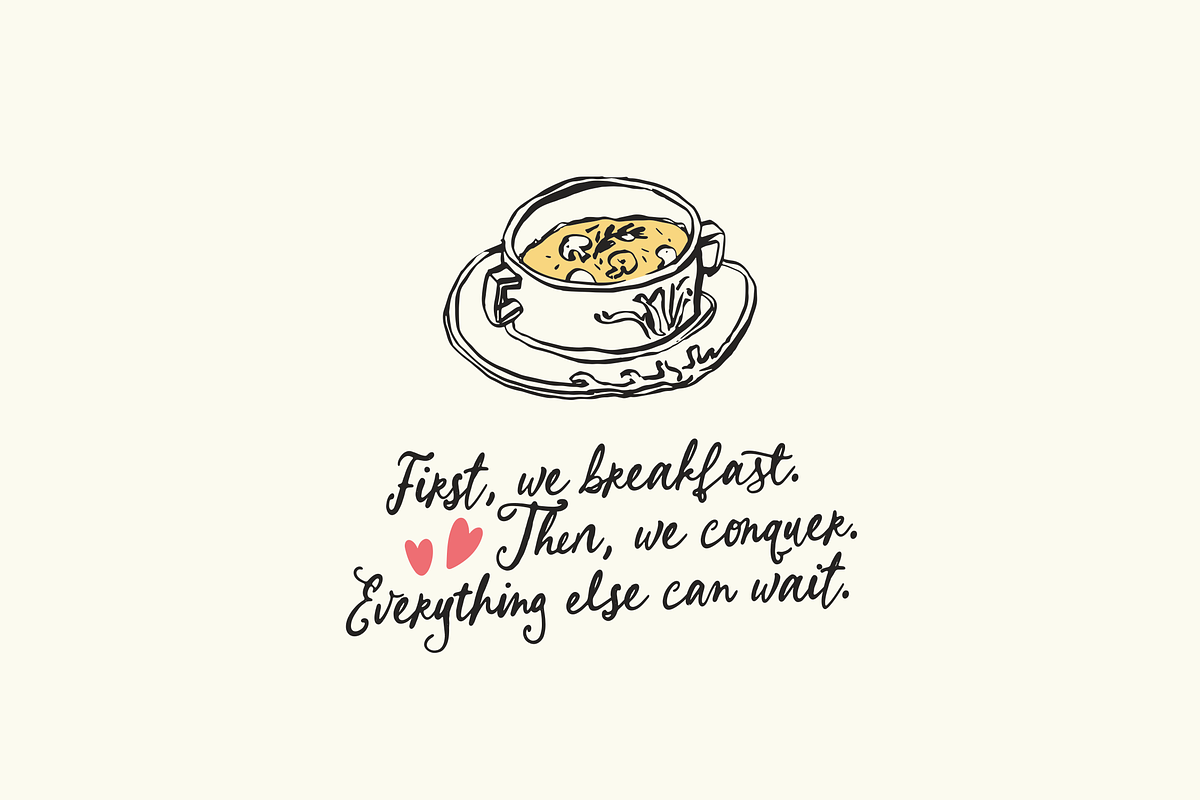 First, we breakfast.
Then, we conquer.
Everything else can wait.